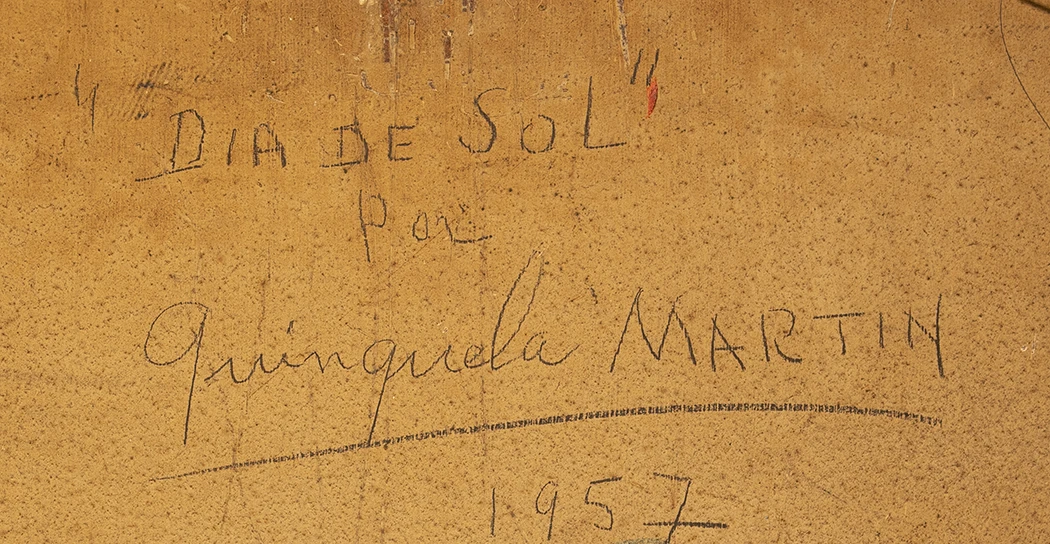 "DIA DE SOL"
Por
Quinquela MARTIN
1957